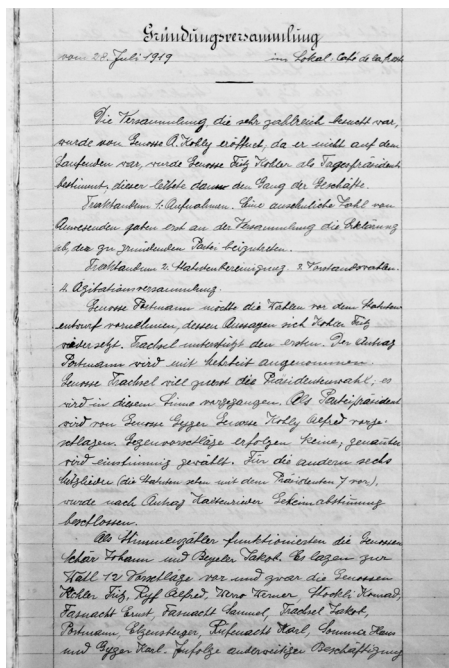 Gründungsversammlung
vom 28. Juli 1919 im Lokal: Café de la poste
Die Versammlung, die sehr zahlreich besucht war,
wurde von Genosse A. Kohly eröffnet, da er nicht auf dem
Laufenden war, wurde Genosse Fritz Kohler als Tagespräsident
bestimmt, dieser leitete dann den Gang der Geschäfte.
Traktandum 1: Aufnahmen. Eine ansehnliche Zahl von
Anwesenden gaben erst an der Versammlung die Erklärung
ab, der zu gründenden Partei beizutreten.
Traktandum 2: Statutenbereinigung. 3. Vorstandswahlen.
4. Agitationsversammlung.
Genosse Portmann möchte die Wahlen vor dem Statuten-
entwurf vornehmen, dessen Aussagen sich Kohler Fritz
widersetzt. Trachsel unterstützt den ersten. Der Antrag
Portmann wird mit Mehrheit angenommen.
Genosse Trachsel will zuerst die Präsidentenwahl; es
wird in diesem Sinne vorgegangen. Als Parteipräsident
wird von Genosse Gyger Genosse Kohly Alfred vorge-
schlagen. Gegenvorschläge erfolgen keine, genannter
wird einstimmig gewählt. Für die andern sechs
Mitglieder (die Statuten sehen mit dem Präsidenten 7 vor),
wurde nach Antrag Kaltenrieder Geheimabstimmung
beschlossen.
Als Stimmenzähler funktionierten die Genossen
Schär Johann und Beyeler Jakob. Es lagen zur
Wahl 12 Vorschläge vor und zwar die Genossen
Kohler Fritz, Ryf Alfred, Werner, Stöckli Konrad,
Fasnacht Ernst, Fasnacht Samuel, Trachsel Jakob,
Portmann, Elzensberger, Rüfenacht Karl, Sommer Hans
und Gyger Karl. Infolge anderweitiger Beschäftigung